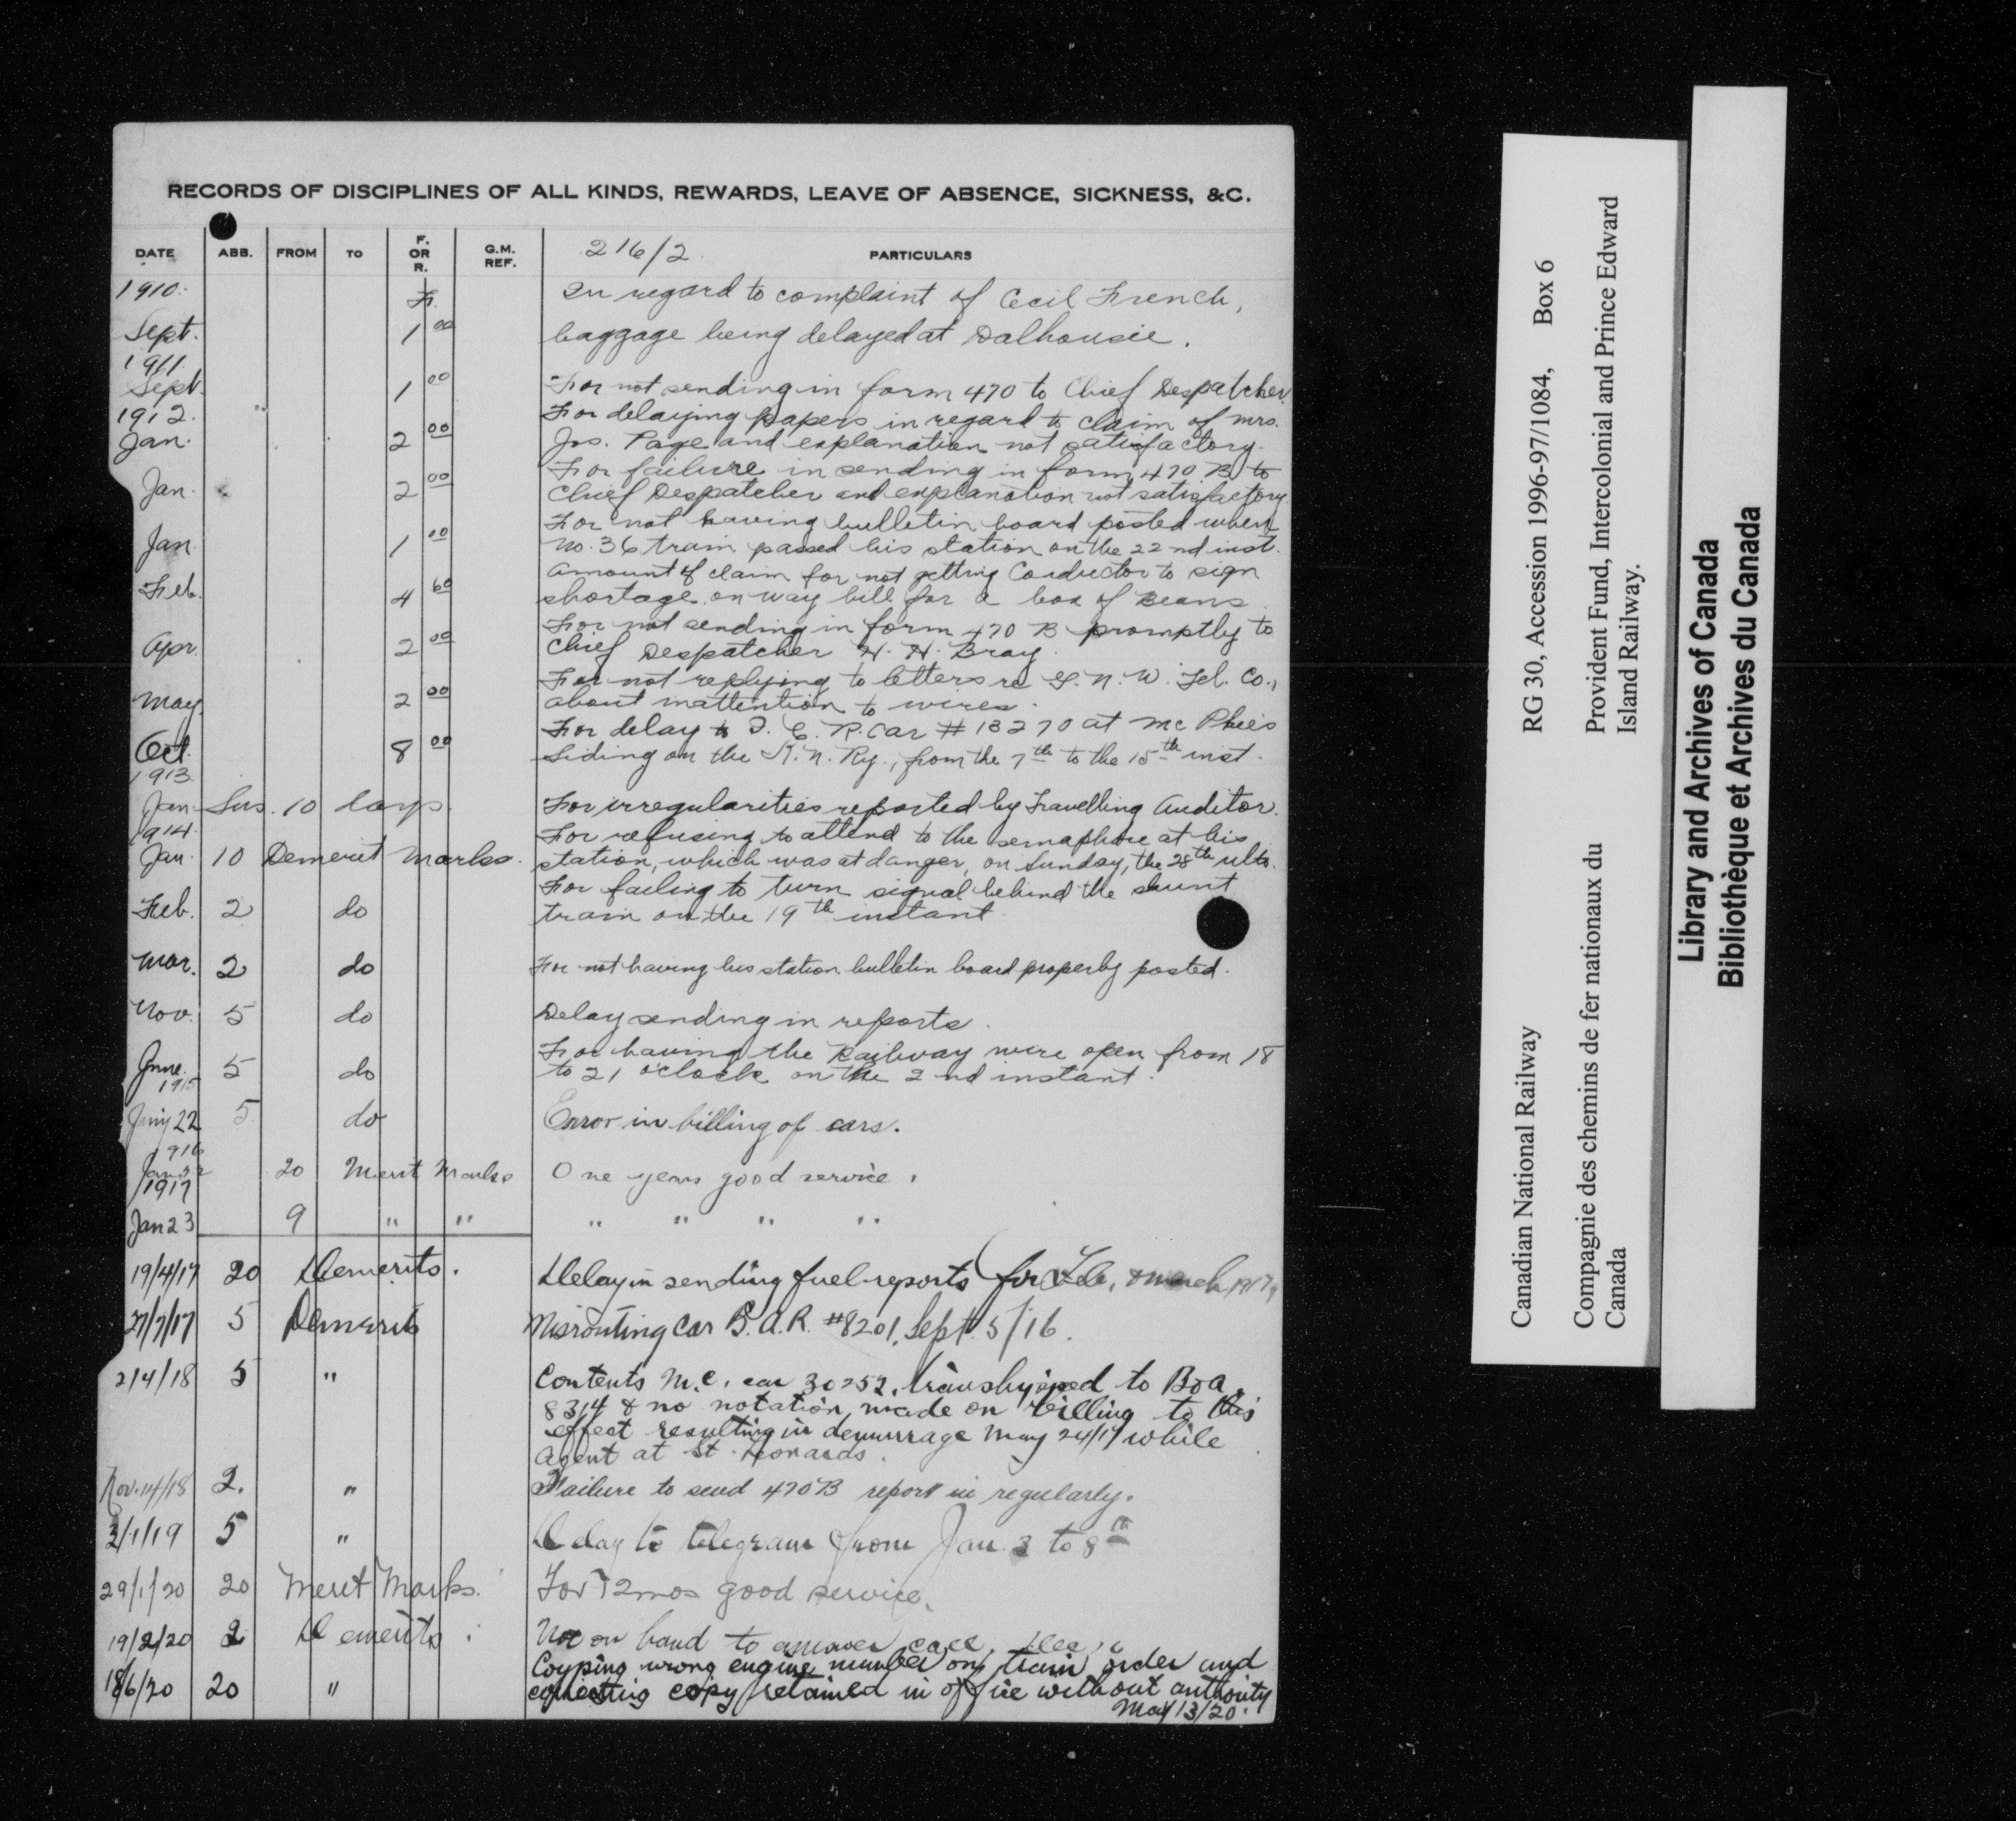 RECORDS OF DISCIPLINES OF ALL KINDS, REWARDS, LEAVE OF ABSENCE, SICKNESS, &C.
DATE ABB. FROM TO F. OR R. G.M. REF. 216/2. PARTICULARS
1910. F. In regard to complaint of Cecil French,
Sept. 1 00 baggage being delayed at Dalhousie.
1911.
Sept. 1 00 For not sending in form 470 to Chief Despatcher.
1912. For delaying papers in regard to claim of Mrs.
Jan. 2 00 Jos. Page and explanation not satisfactory.
For failure in sending in form 470 B to
Jan. 2 00 Chief Despatcher and explanation not satisfactory
For not having bulletin board posted when
Jan. 1 00 No. 36 train passed his station on the 22nd inst.
Amount of claim for not getting Conductor to sign
Feb. 4 60 shortage on way bill for a box of Beans.
For not sending in form 470 B promptly to
Apr. 2 00 Chief Despatcher H. H. Bray.
For not replying to letters re G. N. W. Tel. Co.,
May. 2 00 about inattention to wires.
For delay to I. C. R. Car # 13270 at McPhee's
Oct. 8 00 Siding on the K. N. Ry., from the 7th to the 15th inst.
1913.
Jan. Sus. 10 days. For irregularities reported by Travelling Auditor.
1914. For refusing to attend to the semaphore at his
Jan. 10 Demerit Marks. station, which was at danger, on Sunday, the 28th ulto.
For failing to turn signal behind the shunt
Feb. 2 do train on the 19th instant.
Mar. 2 do For not having his station bulletin board properly posted.
Nov. 5 do Delay sending in reports.
For having the Railway wire open from 18
June. 5 do to 21 o'clock on the 2nd instant.
1915
22 5 do Error in billing of cars.
1916
Jan 20 Merit Marks One years good service.
1917
Jan 23 9 " " " " " "
19/4/17 20 Demerits. Delay in sending fuel reports for Feb. & March 1917,
27/7/17 5 Demerits Misrouting Car B. A. R. #8201, Sept. 5/16.
2/4/18 5 " Contents M. C. car 30252, transhipped to B & A.
8314 & no notation made on billing to this
effect resulting in demurrage May 24/17 while
Agent at St. Leonards.
Nov. 14/18 2. " Failure to send 470B report in regularly.
3/1/19 5 " Delay to telegram from Jan. 3 to 8th
29/1/20 20 Merit Marks. For 12 mos good service.
19/2/20 2 Demerits. Not on hand to answer call.
Coyping wrong engine number on train order and
18/6/20 20 " copy retained in office without authority
May 13/20.
Canadian National Railway RG 30, Accession 1996-97/1084, Box 6
Compagnie des chemins de fer nationaux du Canada Provident Fund, Intercolonial and Prince Edward Island Railway.
Library and Archives of Canada
Bibliothèque et Archives du Canada